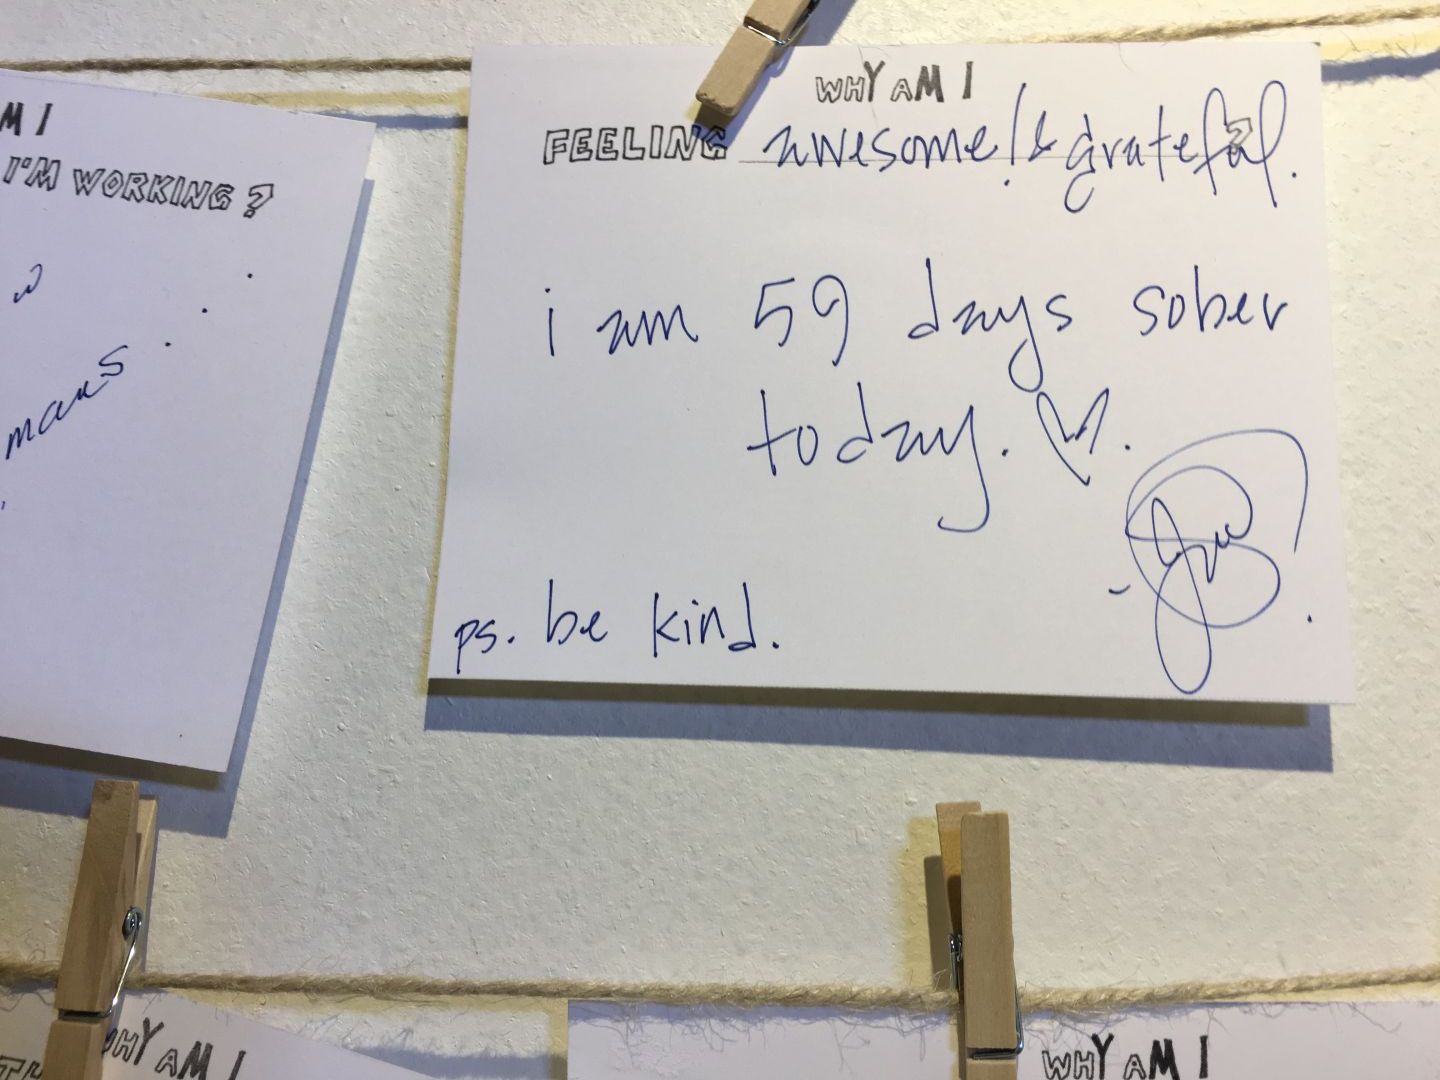 M I
I'M WORKING?
w
maus
WHY AM I
FEELING awesome! & grateful.?
i am 59 days sober
today. ♡.
ps. be kind.
WHY AM I
WHY AM I